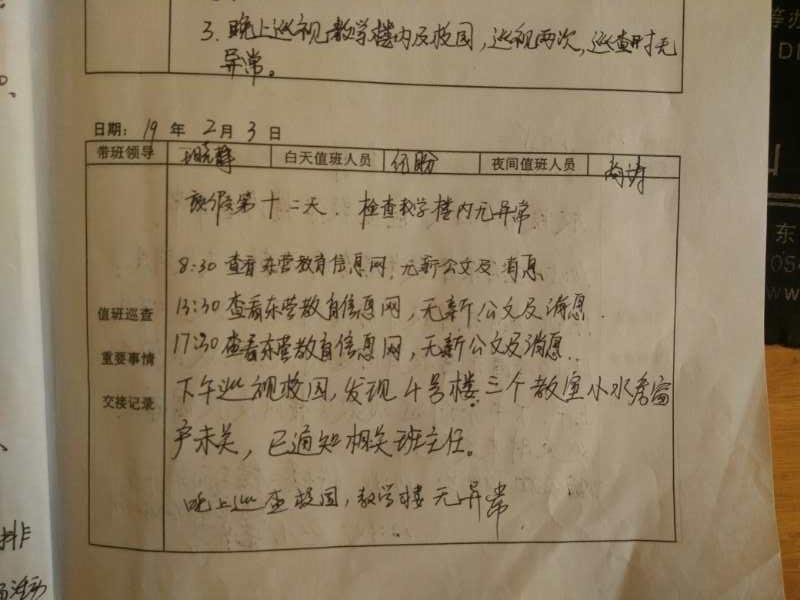 3. 晚上巡视教学楼内及校园，巡视两次，巡查时无
异常。
日期：19 年 2 月 3 日
带班领导 白天值班人员 伍盼 夜间值班人员 尚涛
放假第十二天．检查教学楼内无异常．
8:30 查看东营教育信息网，无新公文及消息
值班巡查
13:30 查看东营教育信息网，无新公文及消息．
重要事情
17:30 查看东营教育信息网，无新公文及消息．
交接记录
下午巡视校园，发现 4号楼三个教室小水房窗
户未关，已通知相关班主任。
晚上巡查校园，教学楼无异常
排
东
054
ww